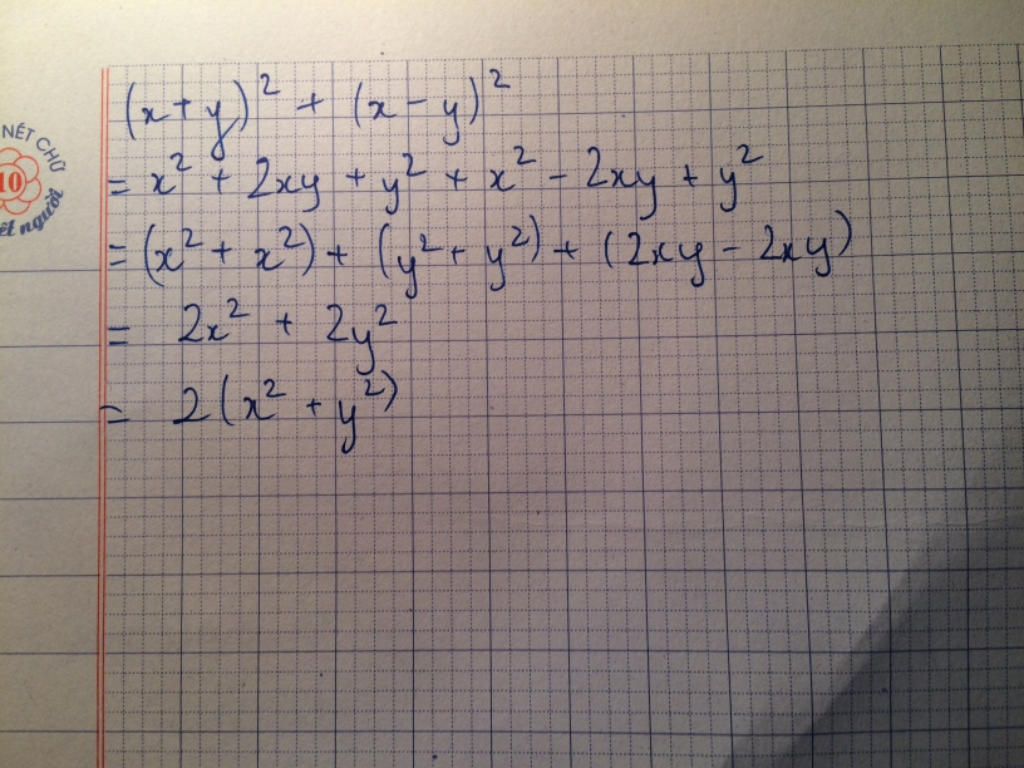 NÉT CHỮ
10
nết người
(x + y)² + (x - y)²
= x² + 2xy + y² + x² - 2xy + y²
= (x² + x²) + (y² + y²) + (2xy - 2xy)
= 2x² + 2y²
= 2(x² + y²)